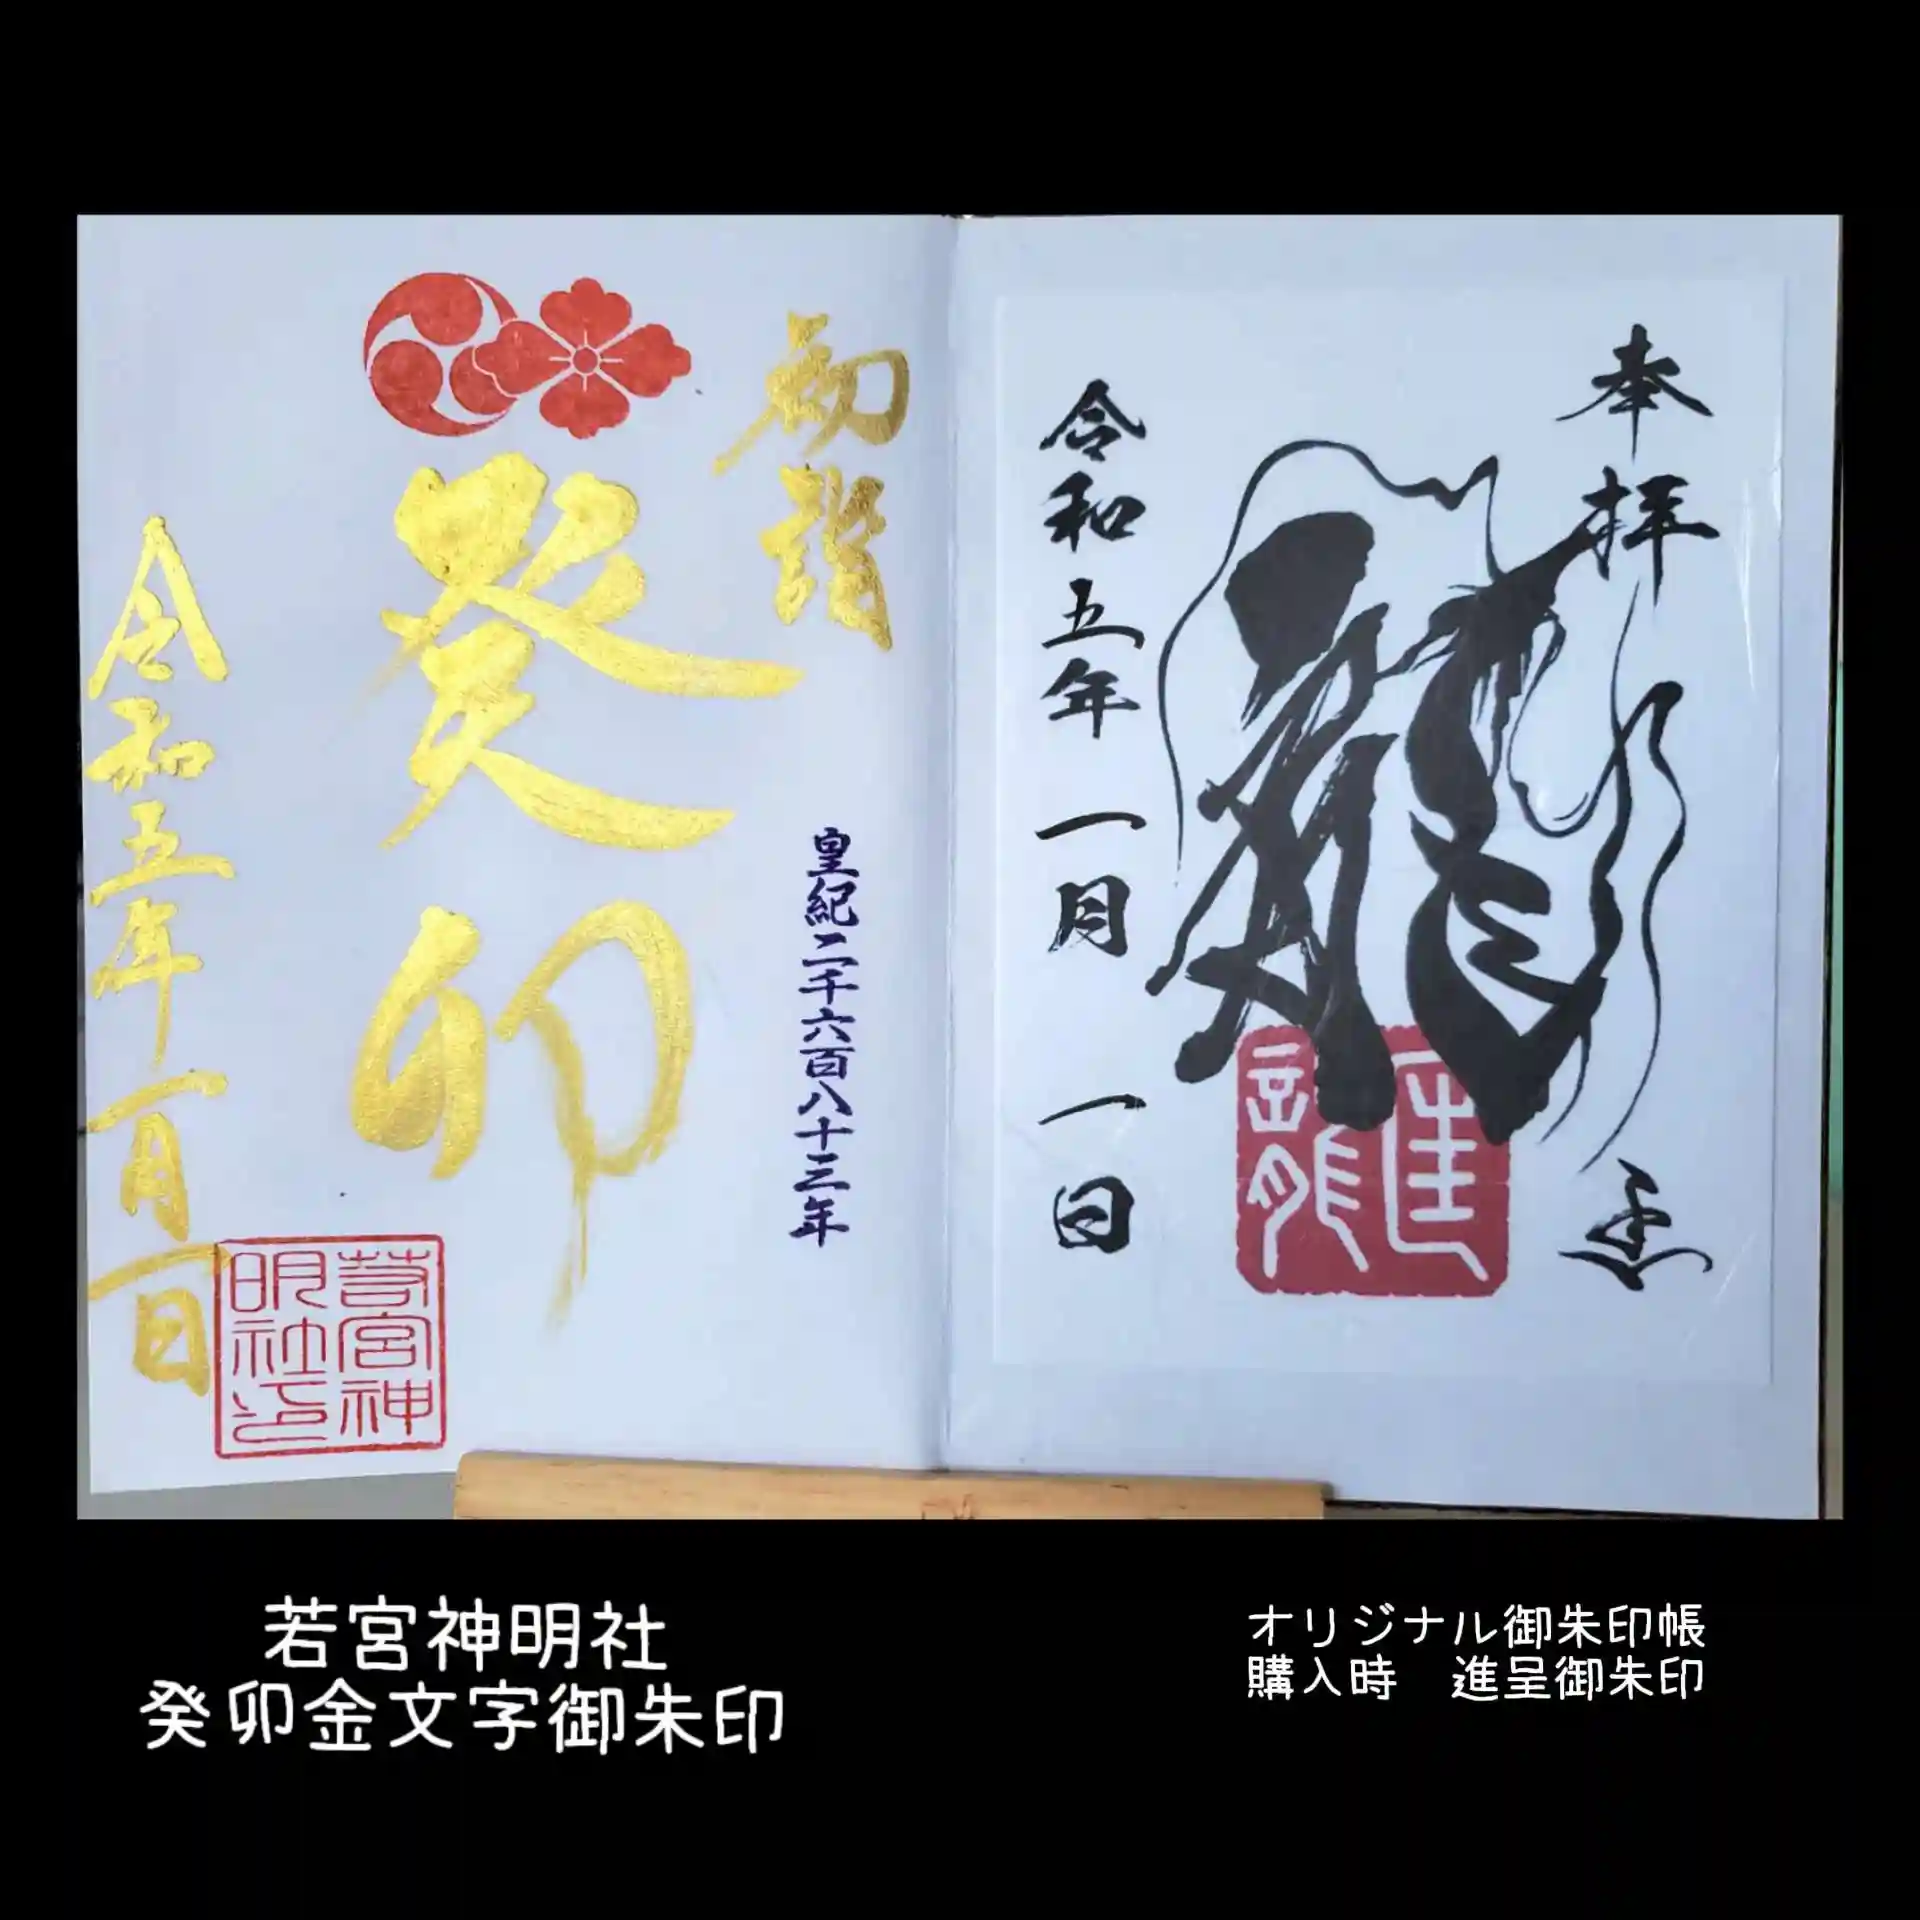 奉拝
龍
令和五年 一月 一日
初詣
皇紀二千六百八十三年
癸卯
令和五年一月一日
若宮神
明社印
若宮神明社
癸卯金文字御朱印
オリジナル御朱印帳
購入時 進呈御朱印